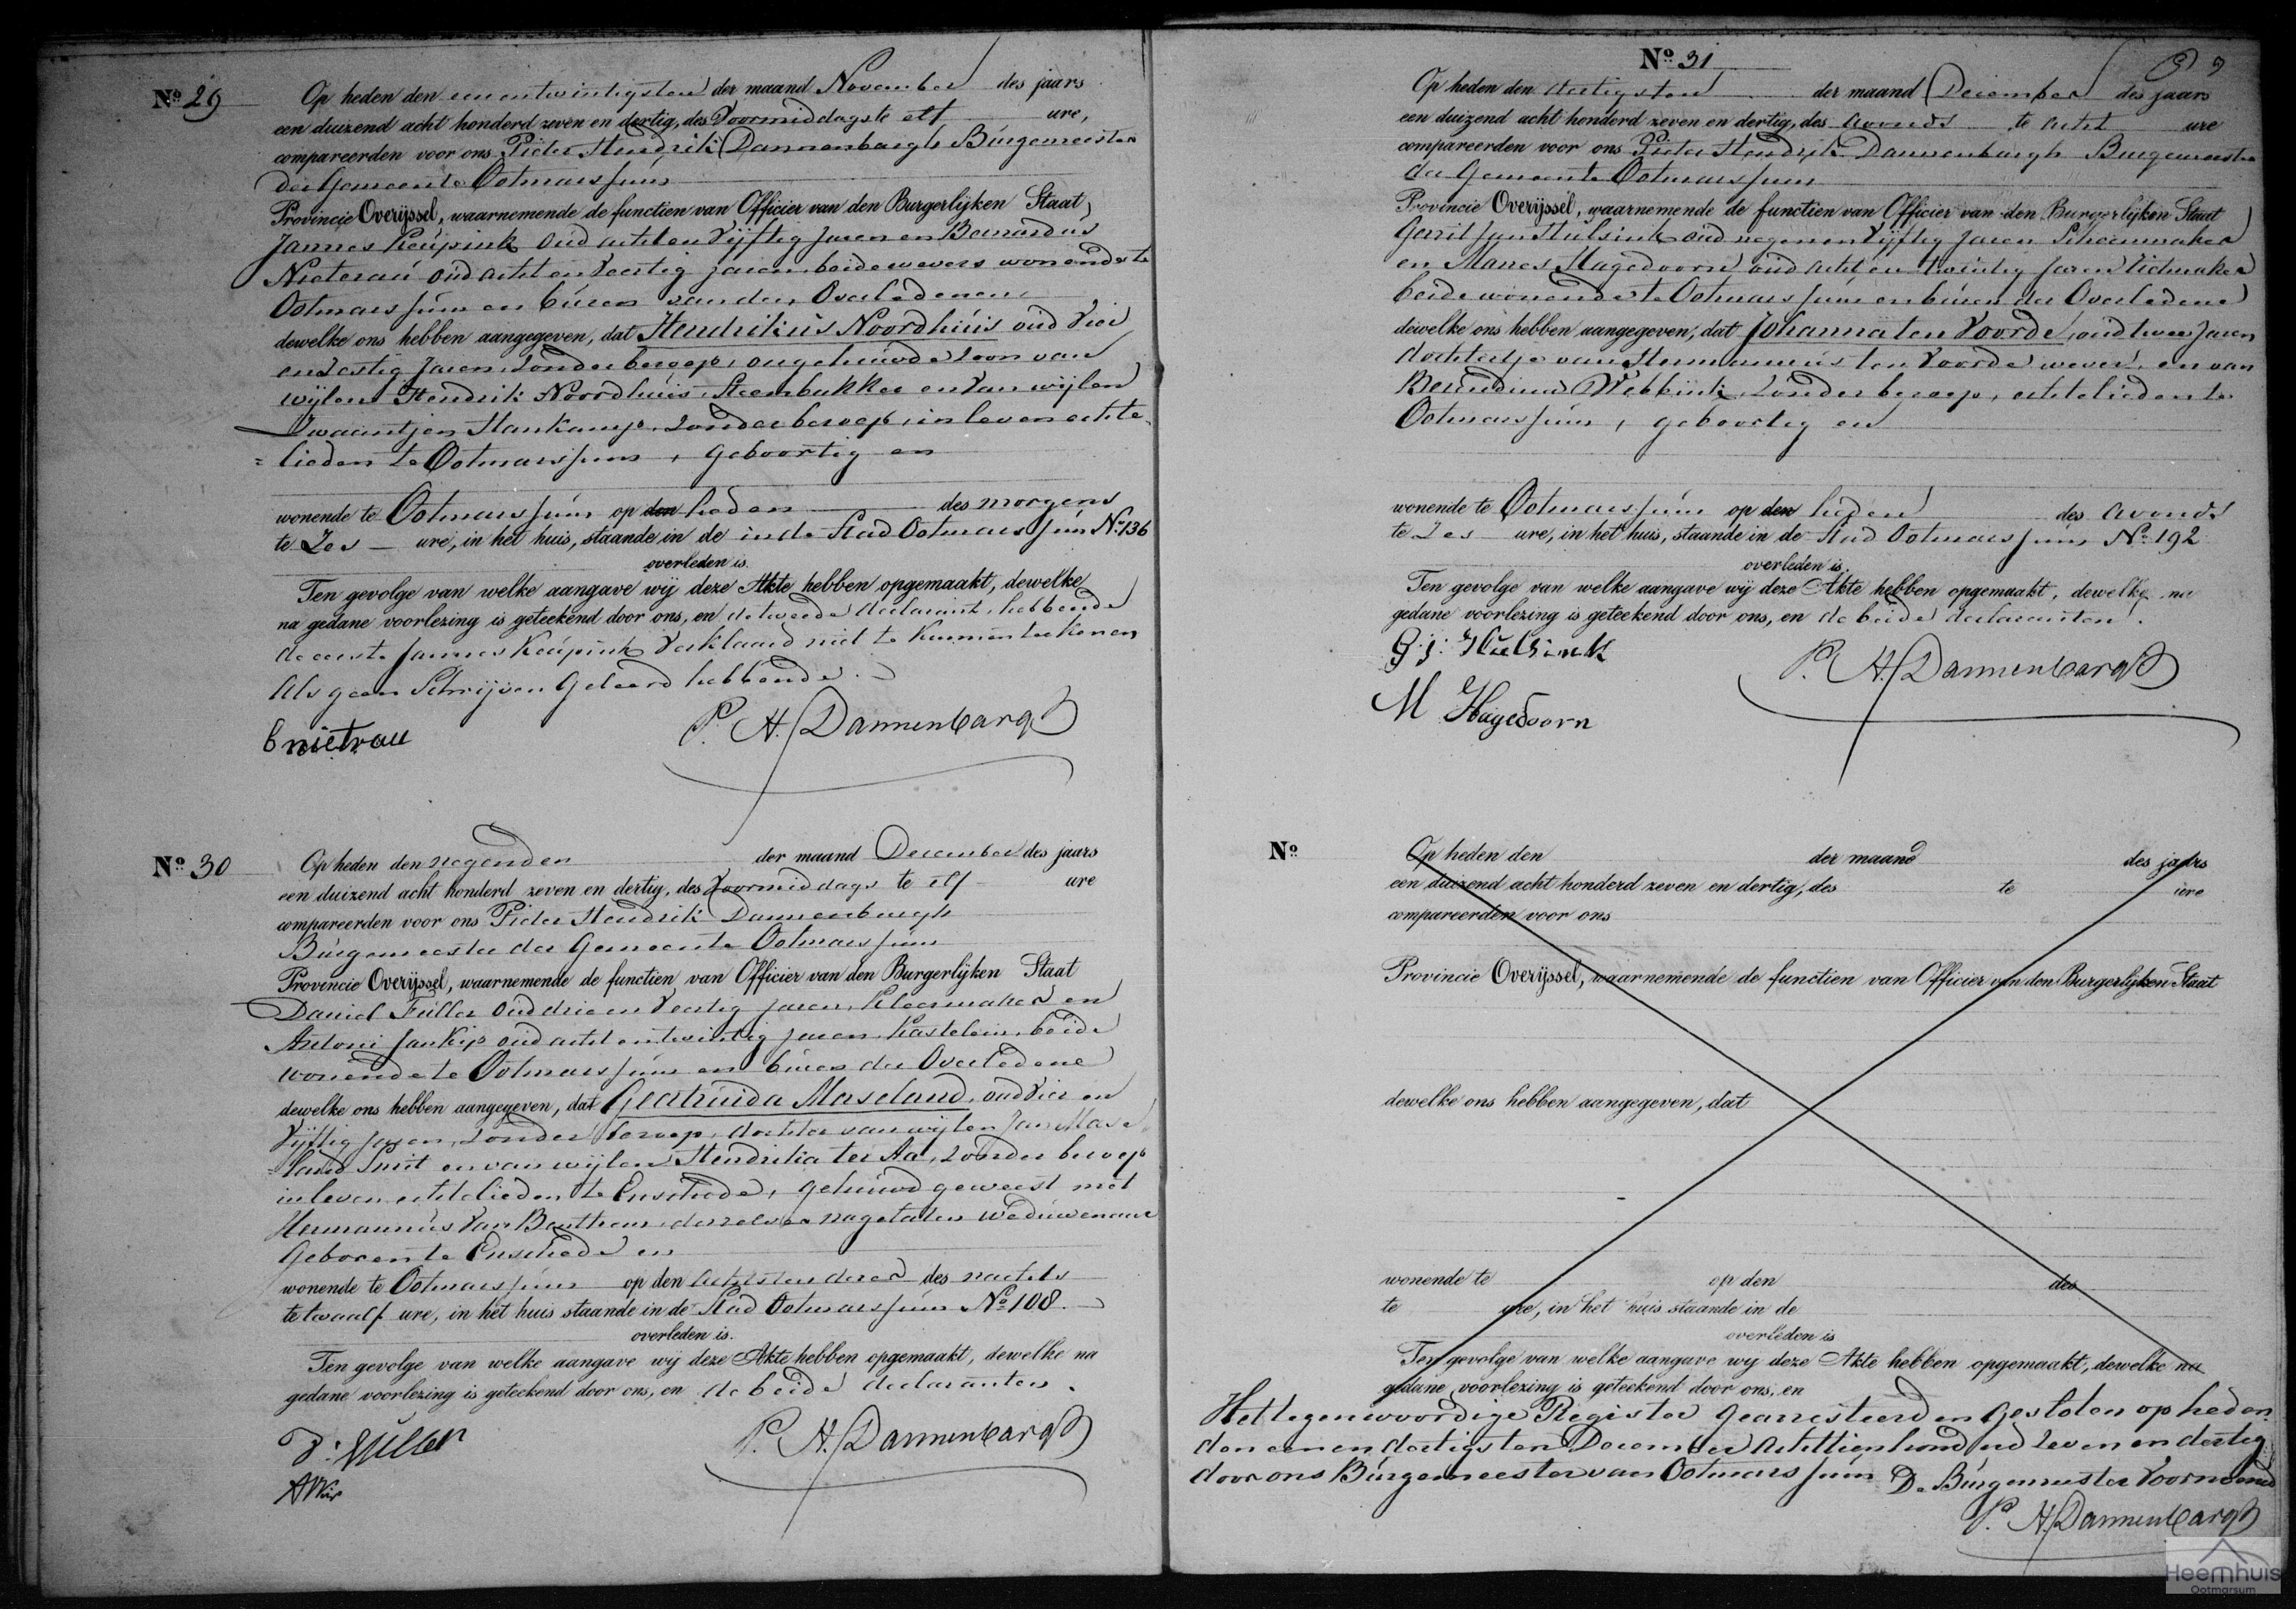 No. 29
Op heden den eenentwintigsten der maand November des jaars
een duizend acht honderd zeven en dertig, des Voormiddags te elf ure,
compareerden voor ons Pieter Hendrik Dannenbargh Burgemeester
der Gemeente Ootmarssum
Provincie Overijssel, waarnemende de functien van Officier van den Burgerlijken Staat,
Jannes Keupink oud acht en Vijftig Jaren en Berardus
Nieterau oud acht en Veertig jaren beide wevers wonende te
Ootmarssum en buren van den Overledenen
dewelke ons hebben aangegeven, dat Hendrikus Noordhuis oud Vier
en Zestig Jaren, Zonder beroep, ongehuwde Zoon van
wijlen Hendrik Noordhuis, Steenbakker en Van wijlen
Zwaantjen Hankamp, Zonder beroep, in leven echte
= lieden te Ootmarssum, geboortig en
wonende te Ootmarssum op den heden des morgens
te Zes ure, in het huis, staande in de in de Stad Ootmarssum No. 136
overleden is.
Ten gevolge van welke aangave wij deze Akte hebben opgemaakt, dewelke
na gedane voorlezing is geteekend door ons, en de tweede declarant, hebbende
de eerste Jannes Keupink Verklaard niet te kunnen teekenen
Als geen Schrijven Geleerd hebbende.
B nietrau
P. H. Dannenbargh
No. 30
Op heden den negenden der maand December des jaars
een duizend acht honderd zeven en dertig, des Voormiddags te elf ure
compareerden voor ons Pieter Hendrik Dannenbargh
Burgemeester der Gemeente Ootmarssum
Provincie Overijssel, waarnemende de functien van Officier van den Burgerlijken Staat
Daniel Fuller oud drie en Veertig jaren, Kleermaker en
Antoni Jan Kip oud acht en twintig jaren, Kastelein, beide
wonende te Ootmarssum en buren der Overledene
dewelke ons hebben aangegeven, dat Geertruida Maseland, oud Vier en
Vijftig Jaren, Zonder beroep, dochter van wijlen Jan Mase
= land Smit en van wijlen Hendrika ter Aa, Zonder beroep
in leven echtelieden te Enschede, gehuwd geweest met
Hermannus Van Benthem, deszelver nagelaten Weduwenaar
Geboren te Enschede en
wonende te Ootmarssum op den achtsten dezer des nachts
te twaalf ure, in het huis staande in de Stad Ootmarssum No. 108.
overleden is.
Ten gevolge van welke aangave wij deze Akte hebben opgemaakt, dewelke na
gedane voorlezing is geteekend door ons, en de beide declaranten.
D: Fuller
P. H. Dannenbargh
A J Kip
No. 31
Op heden den dertigsten der maand December des jaars
een duizend acht honderd zeven en dertig, des avonds te acht ure
compareerden voor ons Pieter Hendrik Dannenbargh Burgemeester
der Gemeente Ootmarssum
Provincie Overijssel, waarnemende de functien van Officier van den Burgerlijken Staat
Gerrit Jan Hulsink oud negen en Vijftig Jaren Schoenmaker
en Manes Hagedoorn oud acht en twintig Jaren
beide wonende te Ootmarssum en buren der Overledene
dewelke ons hebben aangegeven, dat Johanna ten Voorde, oud twee Jaren
dochtertje van Hermannus ten Voorde wever, en van
Berendina Webbink, Zonder beroep, echtelieden te
Ootmarssum, geboortig en
wonende te Ootmarssum op den heden des avonds
te Zes ure, in het huis, staande in de Stad Ootmarssum No. 192
overleden is.
Ten gevolge van welke aangave wij deze Akte hebben opgemaakt, dewelke na
gedane voorlezing is geteekend door ons, en de beide declaranten.
G: J: Hulsink
P. H. Dannenbargh
M Hagedoorn
No.
Op heden den der maand des jaars
een duizend acht honderd zeven en dertig, des te ure
compareerden voor ons
Provincie Overijssel, waarnemende de functien van Officier van den Burgerlijken Staat
dewelke ons hebben aangegeven, dat
wonende te op den des
te ure, in het huis staande in de
overleden is
Ten gevolge van welke aangave wij deze Akte hebben opgemaakt, dewelke na
gedane voorlezing is geteekend door ons, en
Het tegenwoordige Register Gearresteerd en Gesloten op heden
den een en dertigsten December achttienhonderd zeven en dertig
door ons Burgemeester van Ootmarssum De Burgemeester Voornoemd
P. H. Dannenbargh
Heemhuis
Ootmarsum